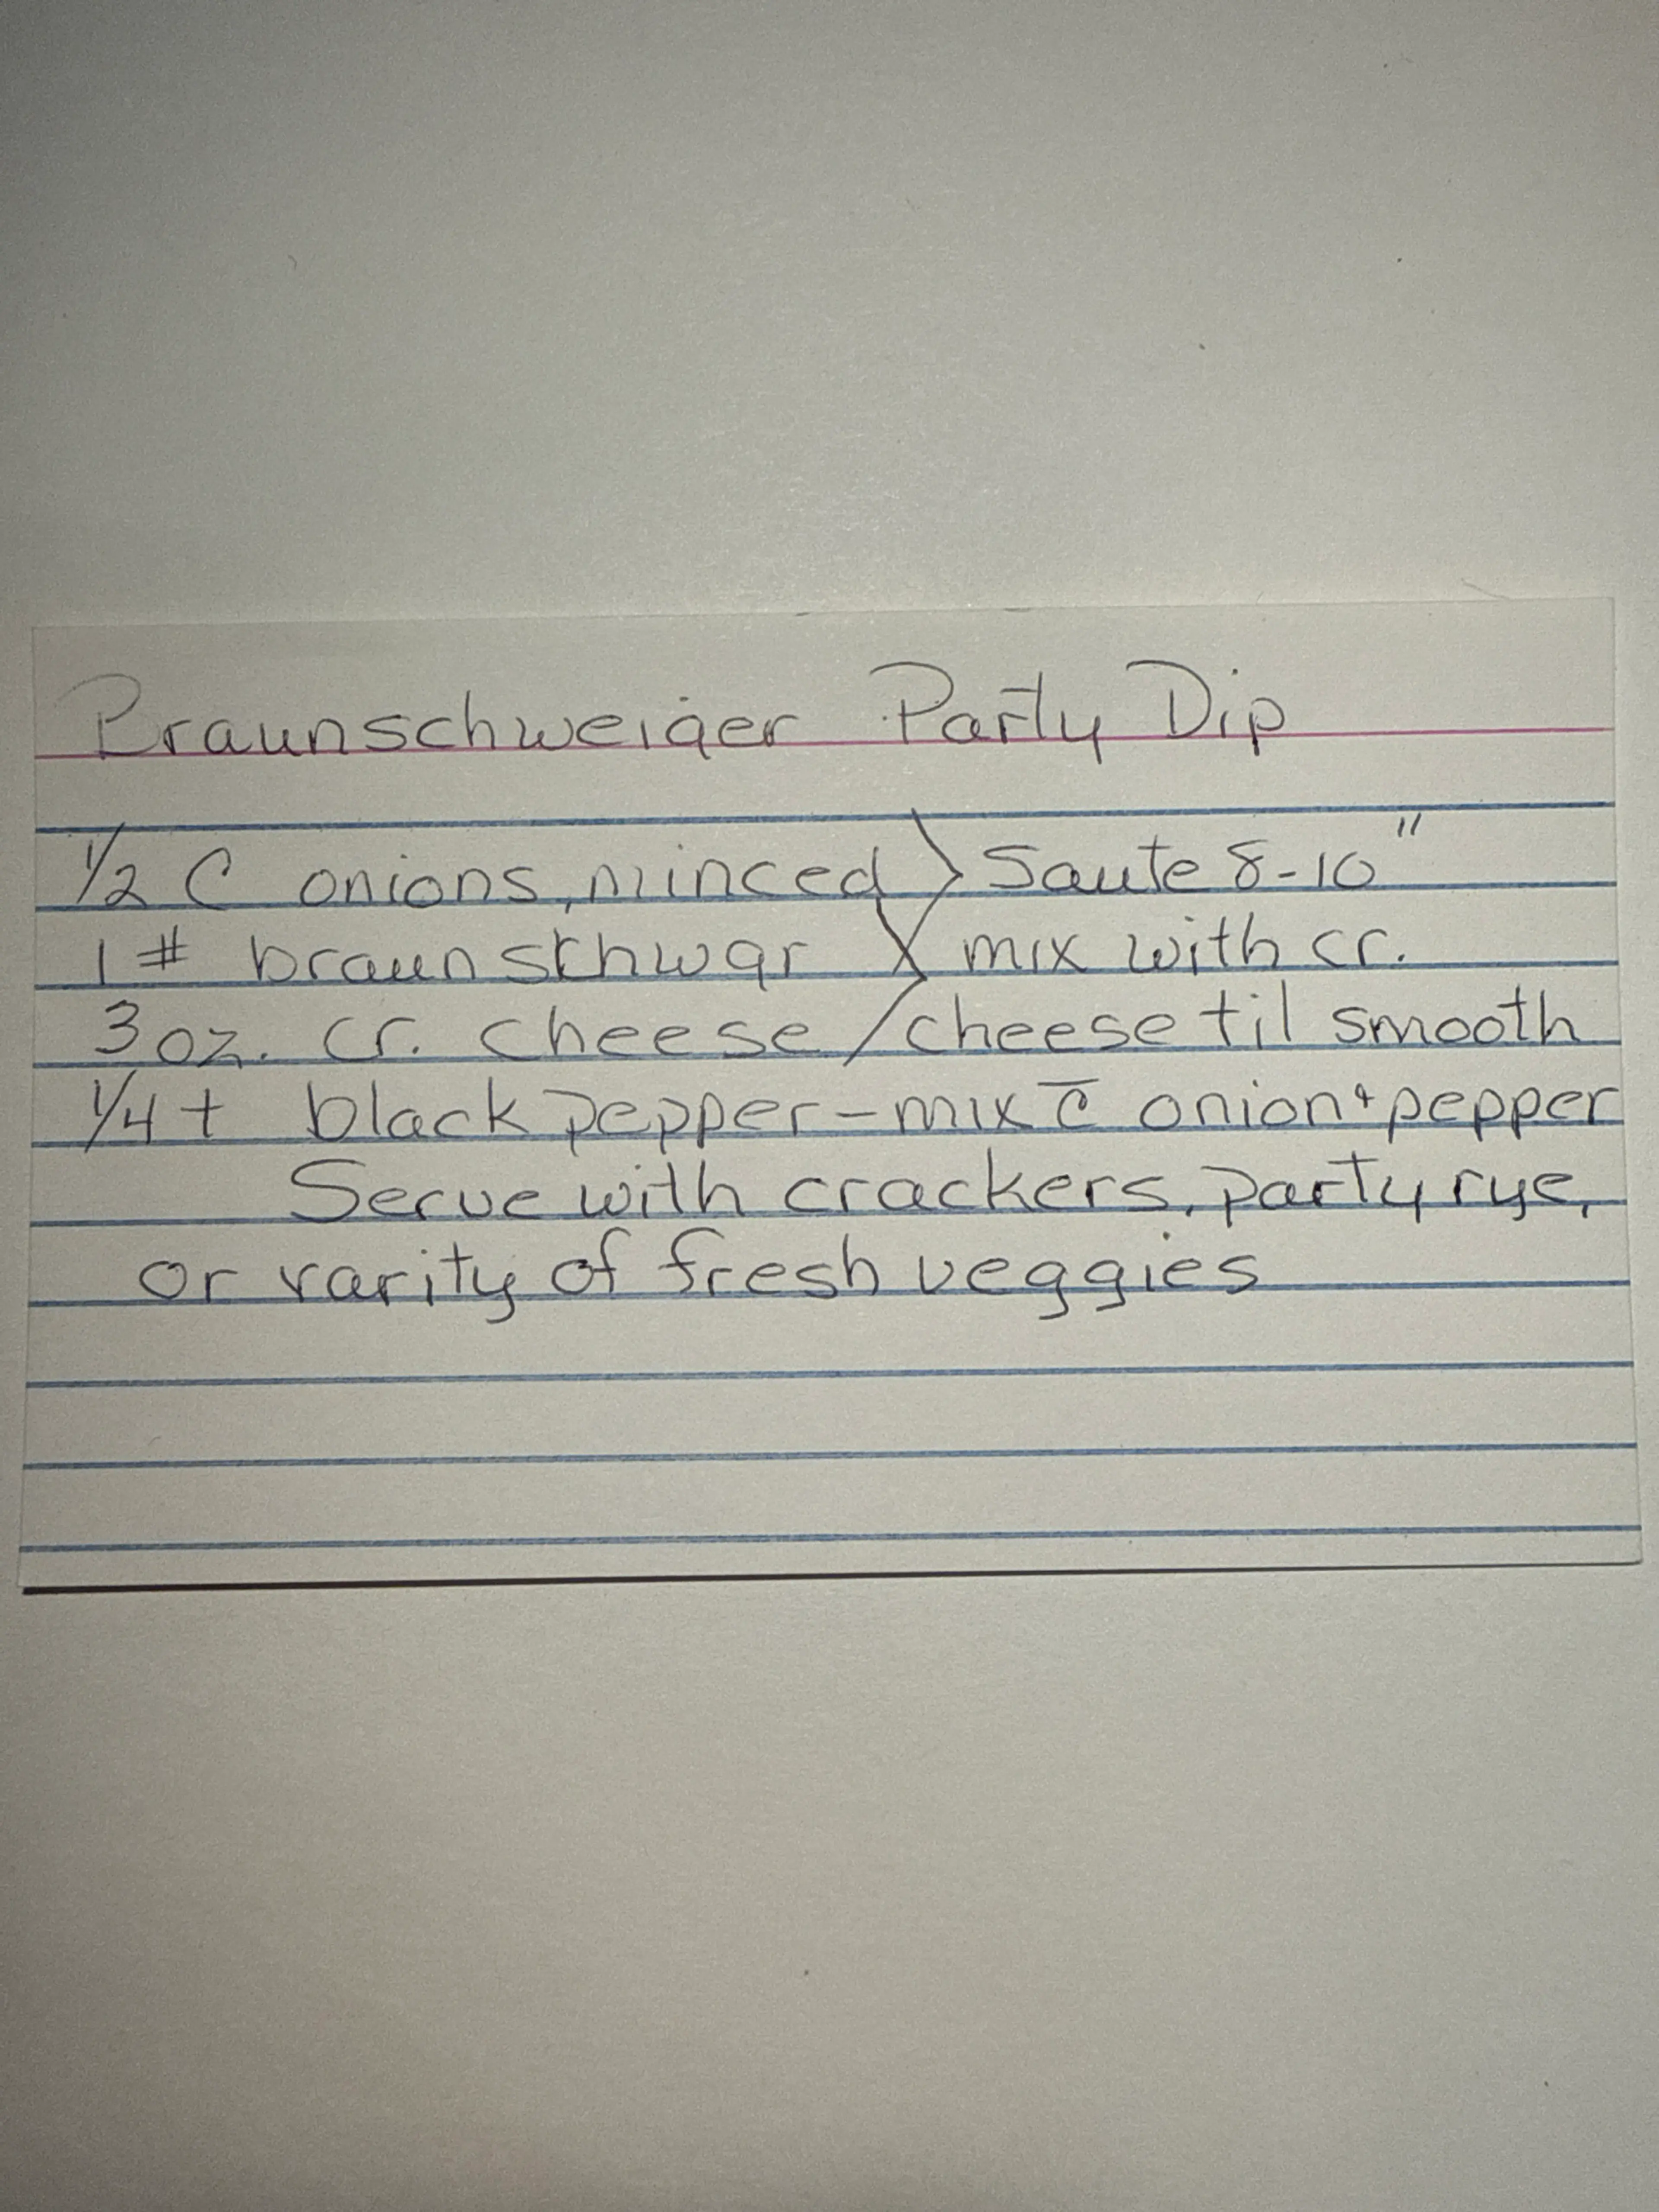 Braunschweiger Party Dip
1/2 C onions, minced > Saute 8-10"
1 # braunschwgr > mix with cr.
3 oz. cr. cheese / cheese til smooth
1/4 t black pepper - mix c̄ onion + pepper
Serve with crackers, party rye,
or varity of fresh veggies